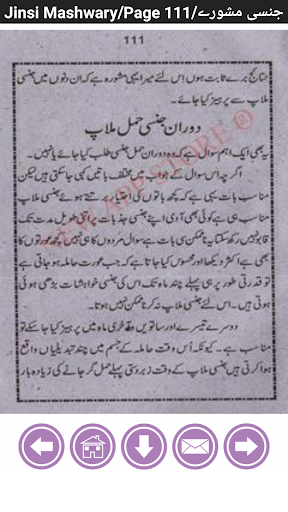 Jinsi Mashwary/Page 111/جنسی مشورے
111
نتائج برے ثابت ہوں اس لئے میرا یہی مشورہ ہے کہ ان دنوں میں جنسی
ملاپ سے پرہیز کیا جائے۔
دوران جنسی حمل ملاپ
یہ بھی ایک اہم سوال ہے کہ وہ دوران حمل جنسی طلب کیا جائے یا نہیں۔
اگرچہ اس سوال کے جواب میں مختلف باتیں کہی جا سکتی ہیں لیکن
مناسب بات یہی ہے کہ کچھ باتوں کی احتیاط برتتے ہوئے جنسی ملاپ
مناسب ہی ہے کوئی بھی آدمی اپنے جنسی جذبات پر اتنی طویل مدت تک
قابو نہیں رکھ سکتا یہ ناممکن سی بات ہے سوال مردوں کا ہی نہیں کچھ عورتوں کا
بھی ہے اکثر دیکھا اور محسوس کیا جاتا ہے کہ جب عورت حاملہ ہو جاتی ہے
تو قدرتی طور پر ہی پہلے چند ماہ تک اس کی جنسی خواہشات بڑھی ہوئی
ہوتی ہیں۔ اس لئے جنسی ملاپ نہ کرنا ممکن نہیں ہوتا۔
دوسرے تیسرے اور ساتویں آخری ماہ میں پرہیز کیا جا سکے تو
مناسب ہے۔ کیونکہ اس وقت حاملہ کے جسم میں چند تبدیلیاں واقع
ہوا کرتی ہیں جنسی ملاپ کے وقت زبردستی پہلے حمل گر جانے کی زیادہ بار